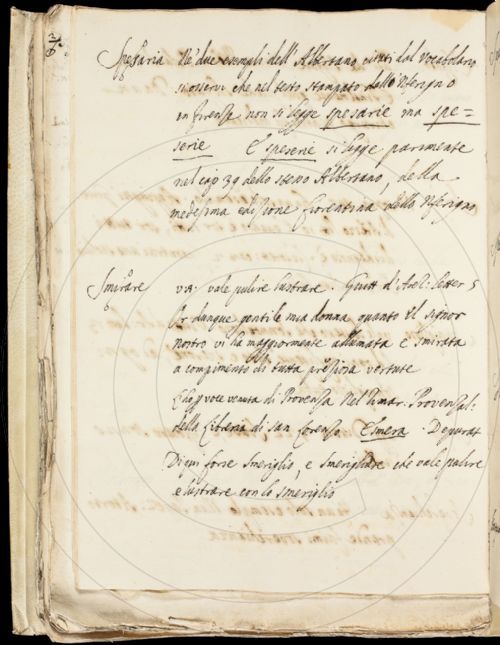 Spesaria Ne' due esempli dell' Albertano citati dal Vocabolario
si osserve che nel testo stampato dallo Nferigno
in firense non si legge spesarie ma spe=
serie E speserie si legge parimente
nel cap 39 dello stesso Albertano, della
medesima edisione fiorentina dello Nferigno
Smirare v.a. vale pulire lustrare. Guitt d'Arez: letter 5
Or dunque gentile mia donna quanto il signor
nostro vi ha maggiormente allumata e smirata
a compimento di tutta pressiosa vertute
voce venuta di Provensa Nel Rimar. Provensal:
della libreria di san Lorenso. Esmera. Depurat
Di qui forse smeriglio, e smerigliare che vale pulire
e lustrare con lo smeriglio